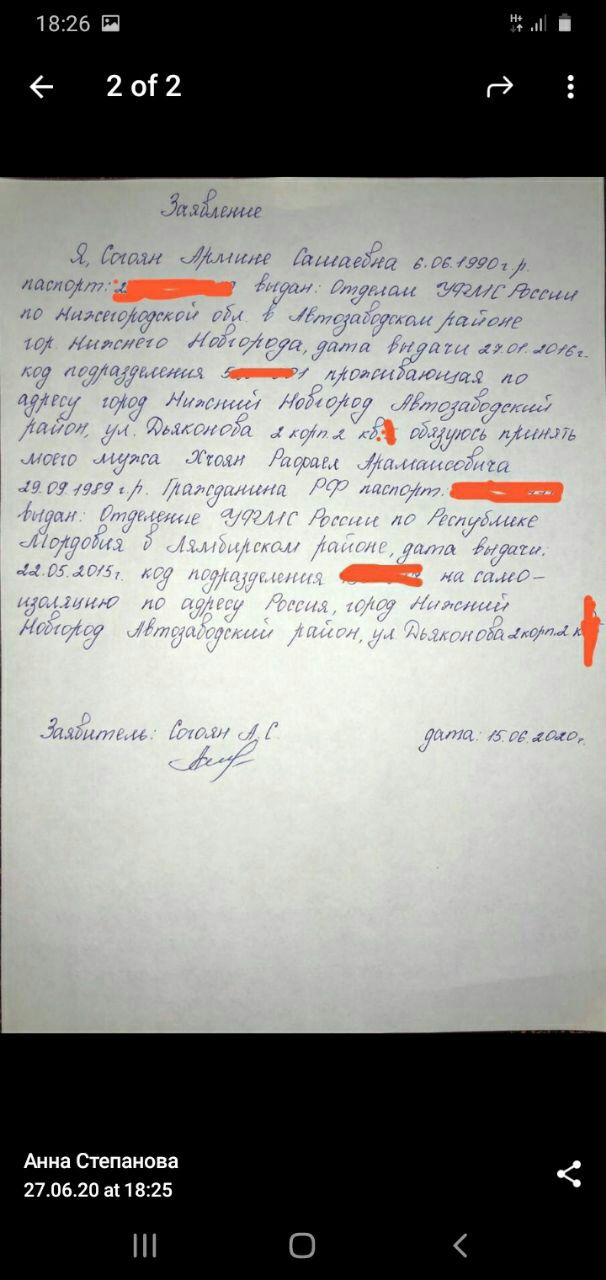 18:26
H+
2 of 2
Заявление
Я, Согоян Армине Сашаевна 6.06.1990г.р.
паспорт: 2 выдан: Отделом УФМС России
по Нижегородской обл. в Автозаводском районе
гор. Нижнего Новгорода, дата выдачи 27.01.2016г.
код подразделения 5 1 проживающая по
адресу город Нижний Новгород Автозаводский
район, ул. Дьяконова 2 корп. 2 кв. обязуюсь принять
моего мужа Хчоян Рафаел Арамаисовича
29.09.1989 г.р. Гражданина РФ паспорт:
выдан: Отделение УФМС России по Республике
Мордовия в Лямбирском районе, дата выдачи:
22.05.2015г. код подразделения на само-
изоляцию по адресу Россия, город Нижний
Новгород Автозаводский район, ул Дьяконова 2 корп. 2 к
Заявитель: Согоян А.С. дата: 15.06.2020г.
Анна Степанова
27.06.20 at 18:25